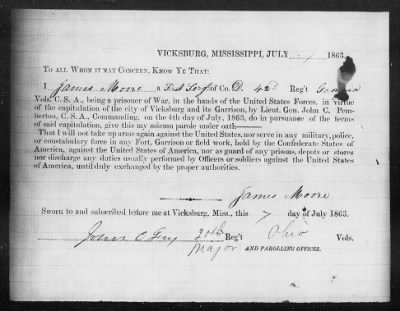 VICKSBURG, MISSISSIPPI, JULY 1863.
TO ALL WHOM IT MAY CONCERN, KNOW YE THAT:
I James Moore a First Sergt of Co. D. 42d Reg't Georgia
Vols. C. S. A., being a prisoner of War, in the hands of the United States Forces, in virtue
of the capitulation of the city of Vicksburg and its Garrison, by Lieut. Gen. John C. Pem-
berton, C. S. A., Commanding, on the 4th day of July, 1863, do in pursuance of the terms
of said capitulation, give this my solemn parole under oath——
That I will not take up arms again against the United States, nor serve in any military, police,
or constabulary force in any Fort, Garrison or field work, held by the Confederate States of
America, against the United States of America, nor as guard of any prisons, depots or stores
nor discharge any duties usually performed by Officers or soldiers against the United States
of America, until duly exchanged by the proper authorities.
James Moore
SWORN to and subscribed before me at Vicksburg, Miss., this 7 day of July 1863.
John C Fry 20th Reg't Ohio Vols.
Major AND PAROLLING OFFICER.